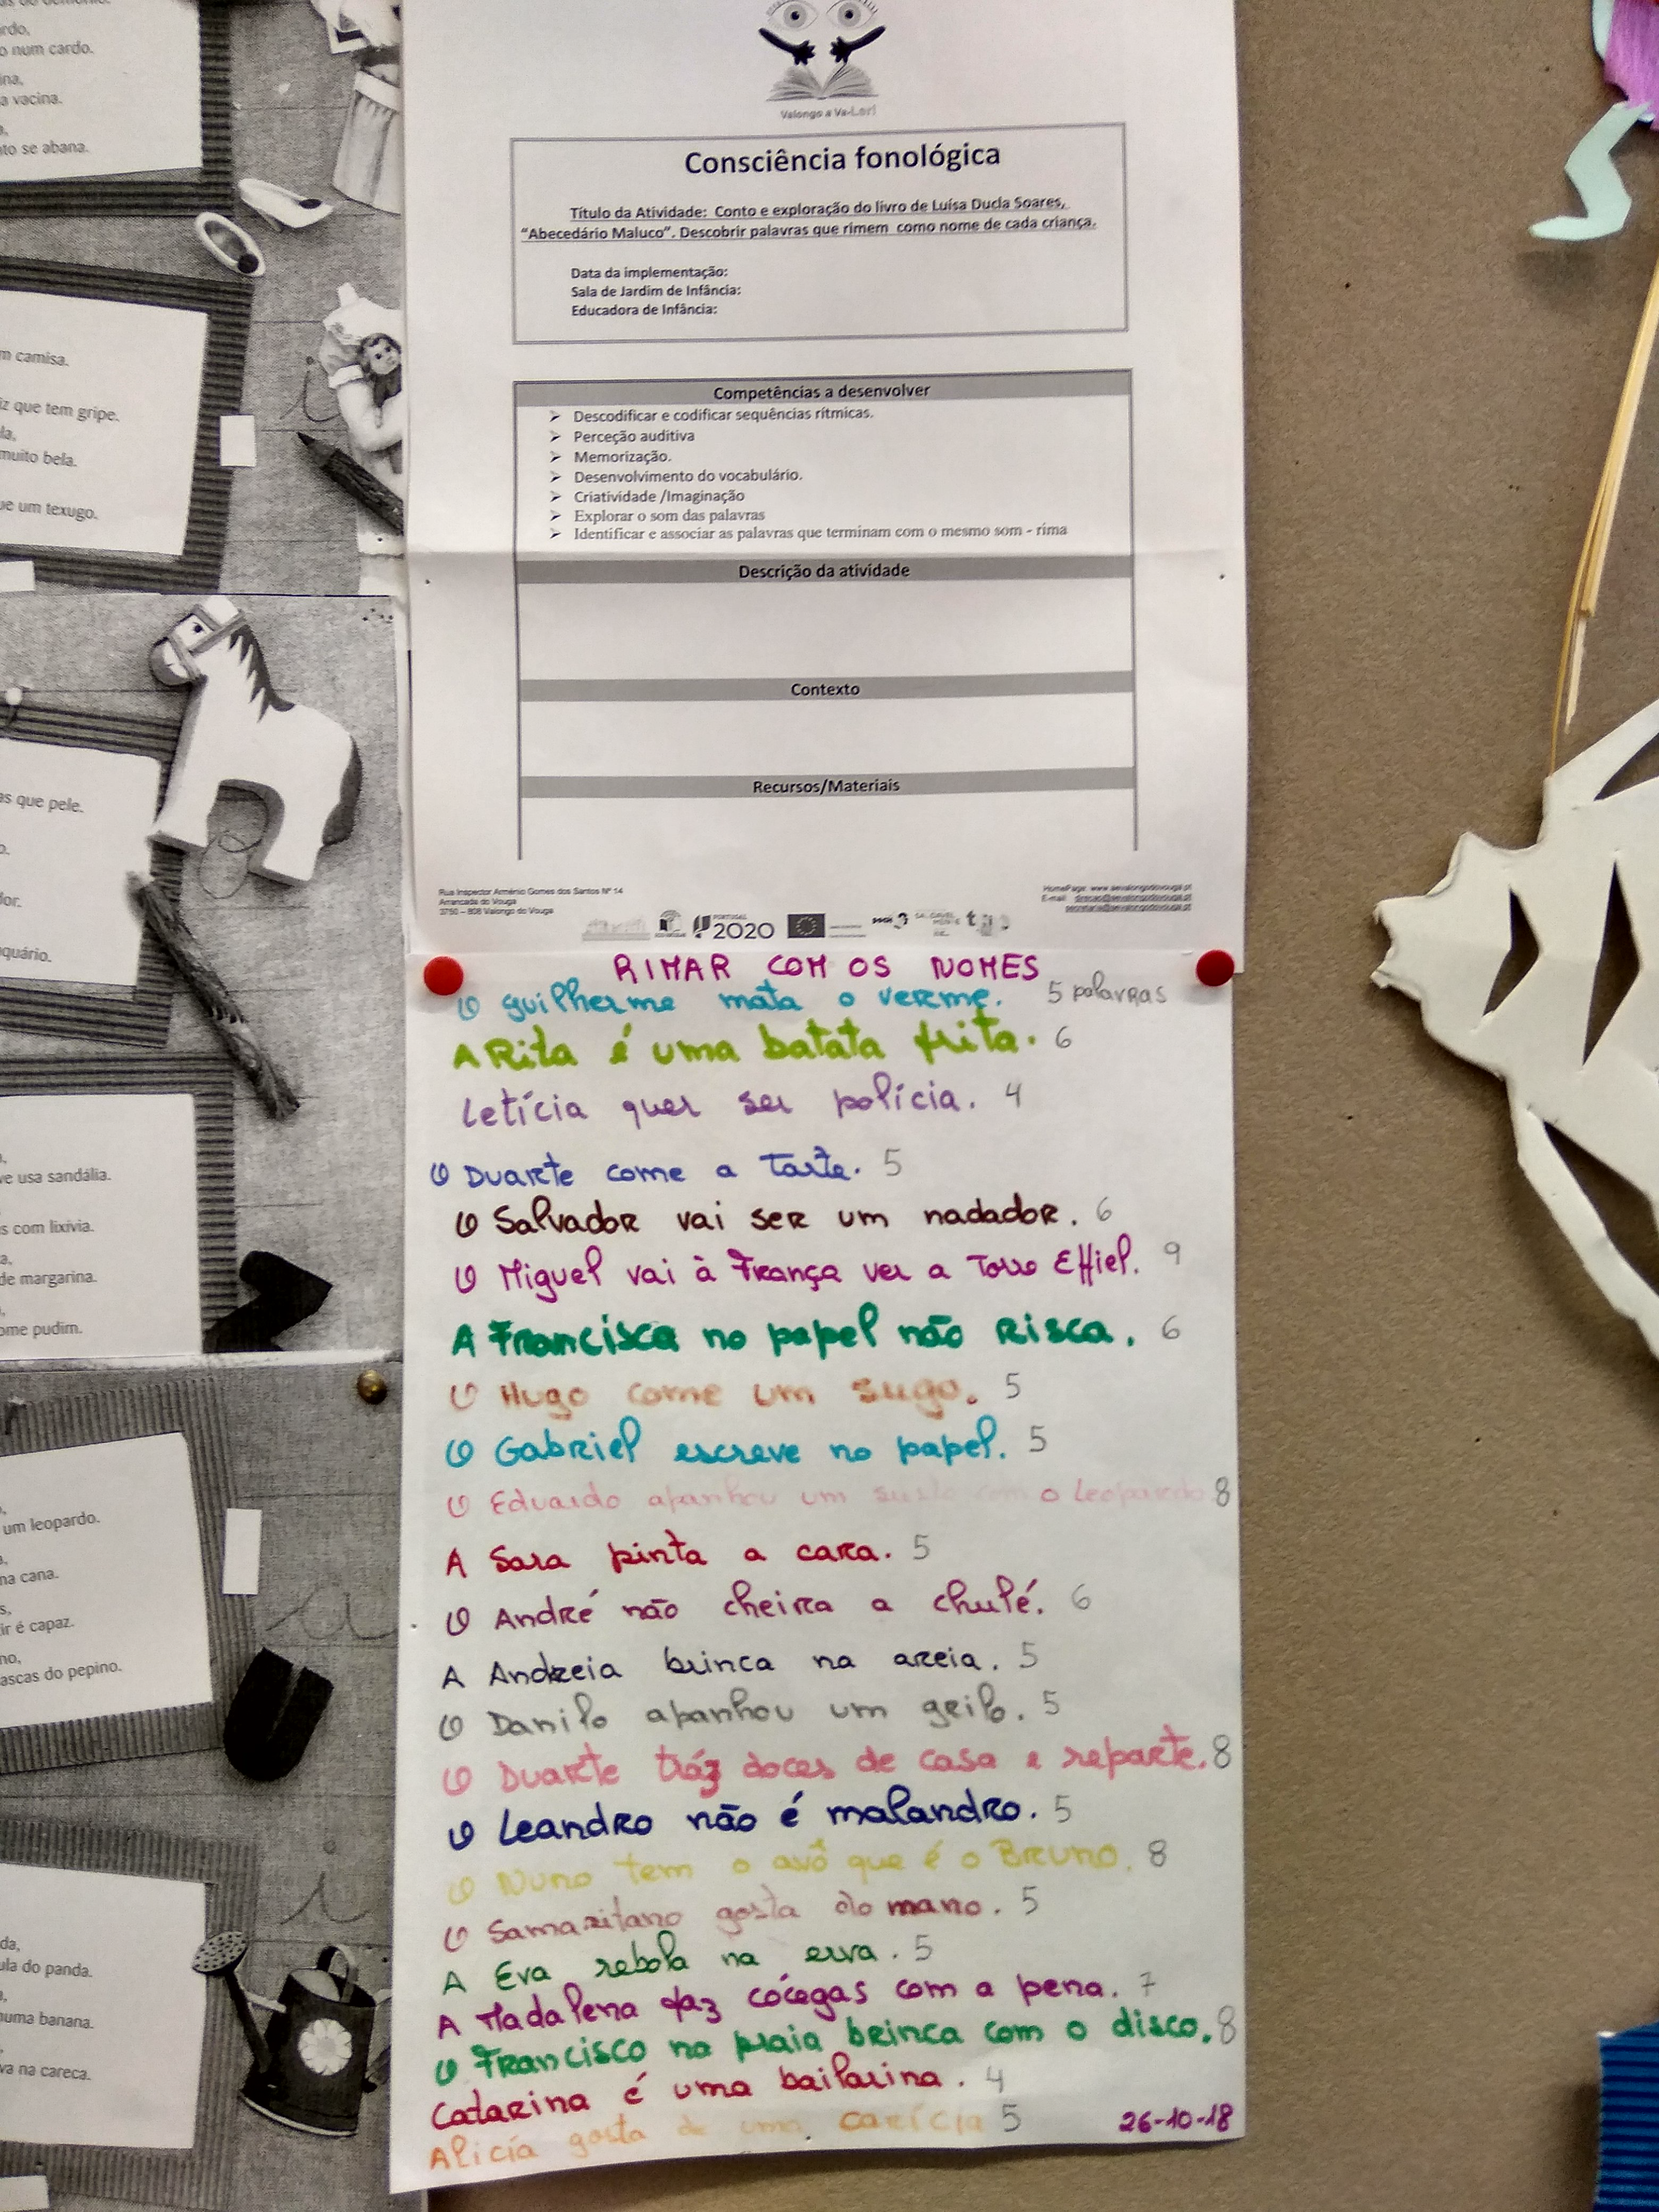 rdo,
o num cardo.
ina,
a vacina.
to se abana.
m camisa.
iz que tem gripe.
la,
muito bela.
ue um texugo.
as que pele.
o.
lor.
quário.
ve usa sandália.
s com lixívia.
a,
de margarina.
ome pudim.
um leopardo.
na cana.
s,
ir é capaz.
no,
ascas do pepino.
da,
ula do panda.
numa banana.
va na careca.
Valongo a Va-Ler!
Consciência fonológica
Título da Atividade: Conto e exploração do livro de Luísa Ducla Soares,
“Abecedário Maluco”. Descobrir palavras que rimem como nome de cada criança.
Data da implementação:
Sala de Jardim de Infância:
Educadora de Infância:
Competências a desenvolver
Descodificar e codificar sequências rítmicas.
Perceção auditiva
Memorização.
Desenvolvimento do vocabulário.
Criatividade /Imaginação
Explorar o som das palavras
Identificar e associar as palavras que terminam com o mesmo som - rima
Descrição da atividade
Contexto
Recursos/Materiais
Rua Inspector Arménio Gomes dos Santos Nº 14
Arrancada do Vouga
3750 – 808 Valongo do Vouga
HomePage: www.aevalongodovouga.pt
E-mail: direcao@aevalongodovouga.pt
secretaria@aevalongodovouga.pt
PORTUGAL
2020
RIMAR COM OS NOMES
O guilherme mata o verme. 5 palavras
A Rita é uma batata frita. 6
Letícia quer ser polícia. 4
O Duarte come a tarte. 5
O Salvador vai ser um nadador. 6
O Miguel vai à França ver a Torre Effiel. 9
A Francisca no papel não risca. 6
O Hugo come um sugo. 5
O Gabriel escreve no papel. 5
O Eduardo apanhou um susto com o leopardo 8
A Sara pinta a cara. 5
O André não cheira a chulé. 6
A Andreia brinca na areia. 5
O Danilo apanhou um grilo. 5
O Duarte tráz doces de casa e reparte. 8
O Leandro não é malandro. 5
O Nuno tem o avô que é o Bruno. 8
O Samaritano gosta do mano. 5
A Eva rebola na erva. 5
A Madalena faz cócegas com a pena. 7
O Francisco na praia brinca com o disco. 8
Catarina é uma bailarina. 4
Alicia gosta de uma carícia 5
26-10-18